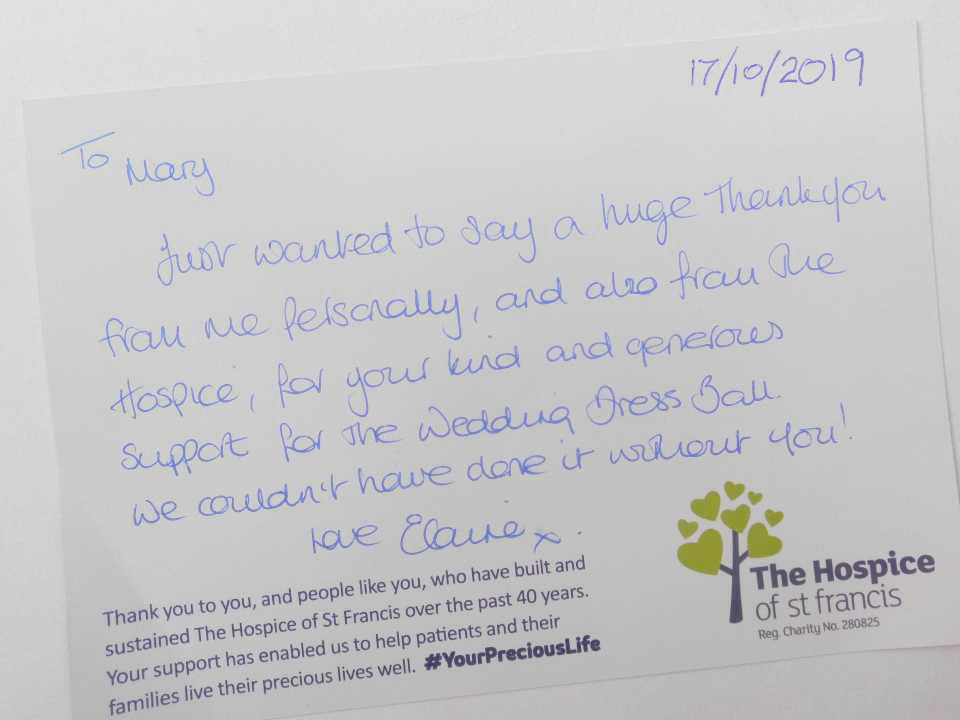 17/10/2019
To Mary
Just wanted to say a huge Thankyou
from me personally, and also from the
Hospice, for your kind and generous
support for the Wedding Dress Ball.
We couldn't have done it without you!
Love Elaine x.
Thank you to you, and people like you, who have built and
sustained The Hospice of St Francis over the past 40 years.
Your support has enabled us to help patients and their
families live their precious lives well. #YourPreciousLife
The Hospice
of st francis
Reg. Charity No. 280825